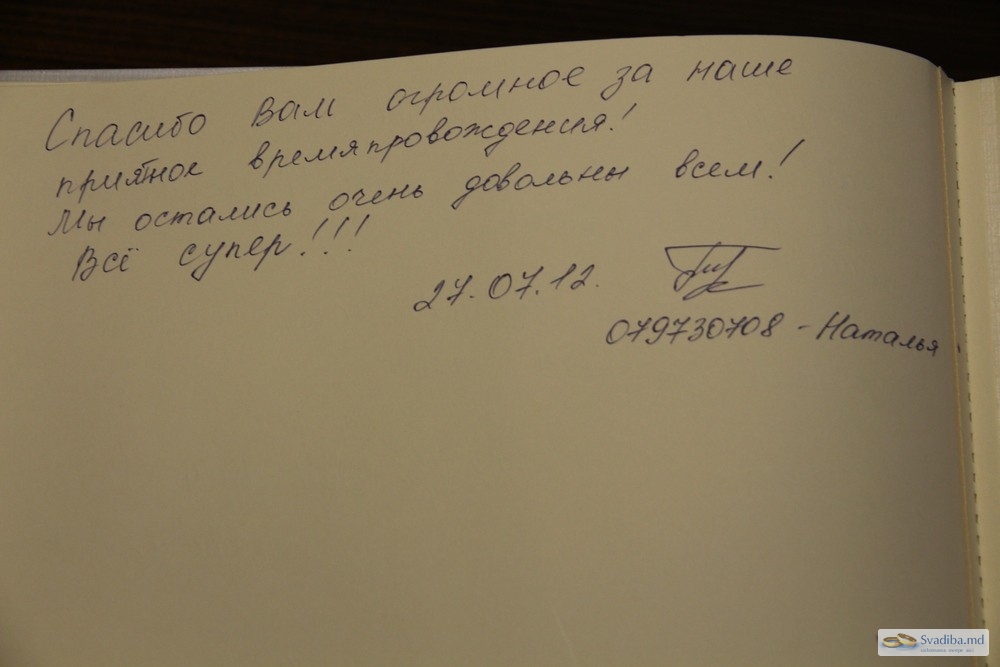 Спасибо Вам огромное за наше
приятное времяпровождения!
Мы остались очень довольны всем!
Всё супер!!!
27.07.12.
079730708 - Наталья
Svadiba.md